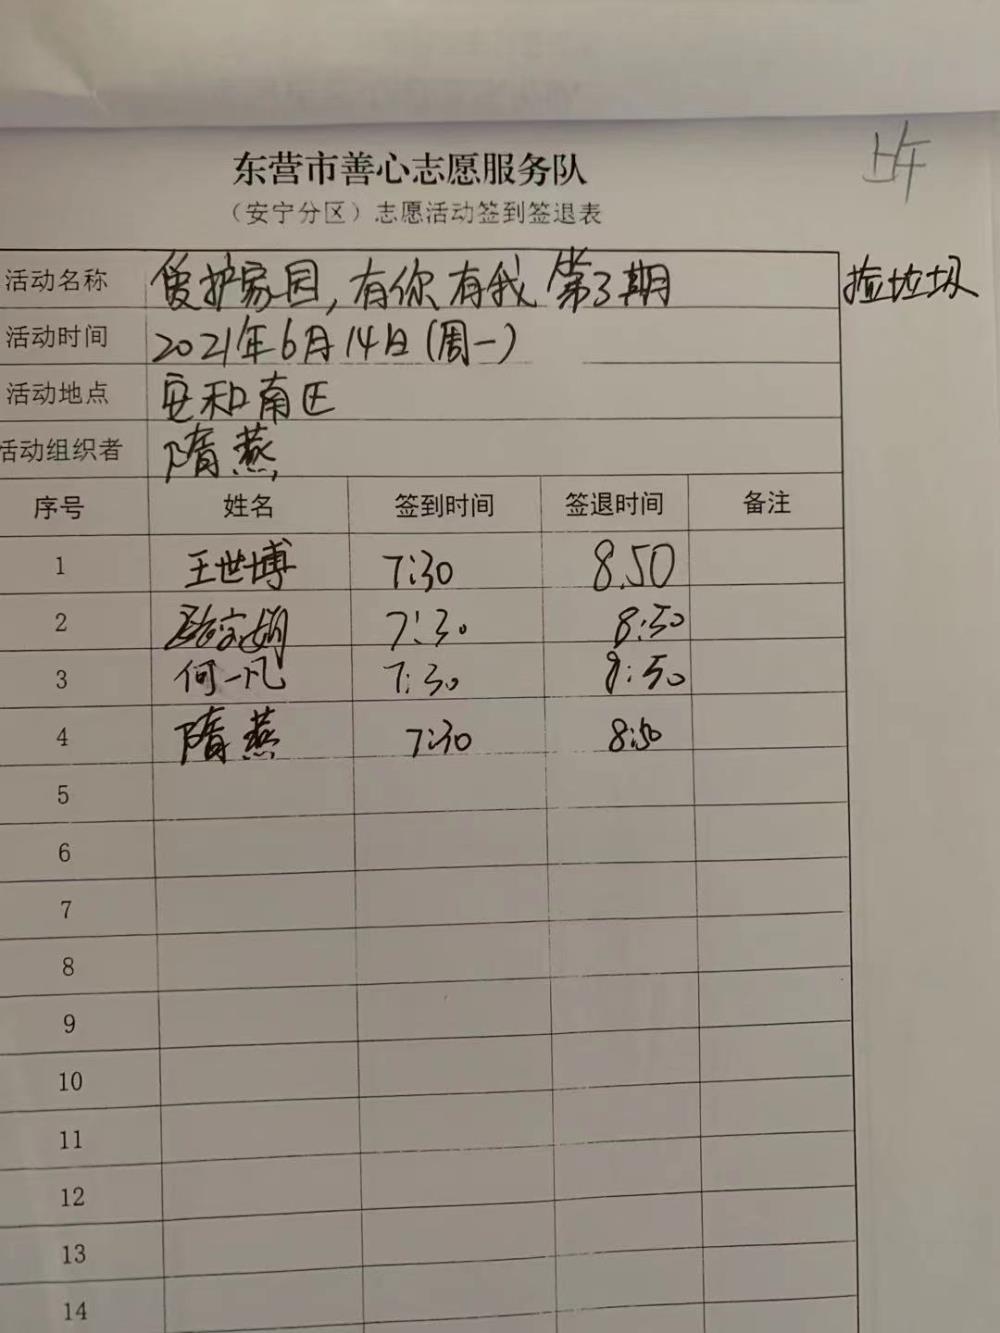 东营市善心志愿服务队
上午
（安宁分区）志愿活动签到签退表
活动名称 爱护家园，有你有我 第3期 捡垃圾
活动时间 2021年6月14日(周一)
活动地点 安和南区
活动组织者 隋燕
序号 姓名 签到时间 签退时间 备注
1 王世博 7:30 8.50
2 7:30 8:50
3 何一凡 7:30 8:50
4 隋燕 7:30 8:50
5
6
7
8
9
10
11
12
13
14